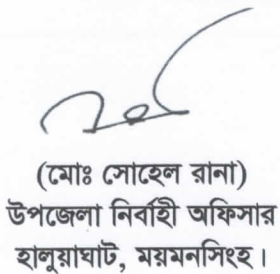 (মোঃ সোহেল রানা)
উপজেলা নির্বাহী অফিসার
হালুয়াঘাট, ময়মনসিংহ।